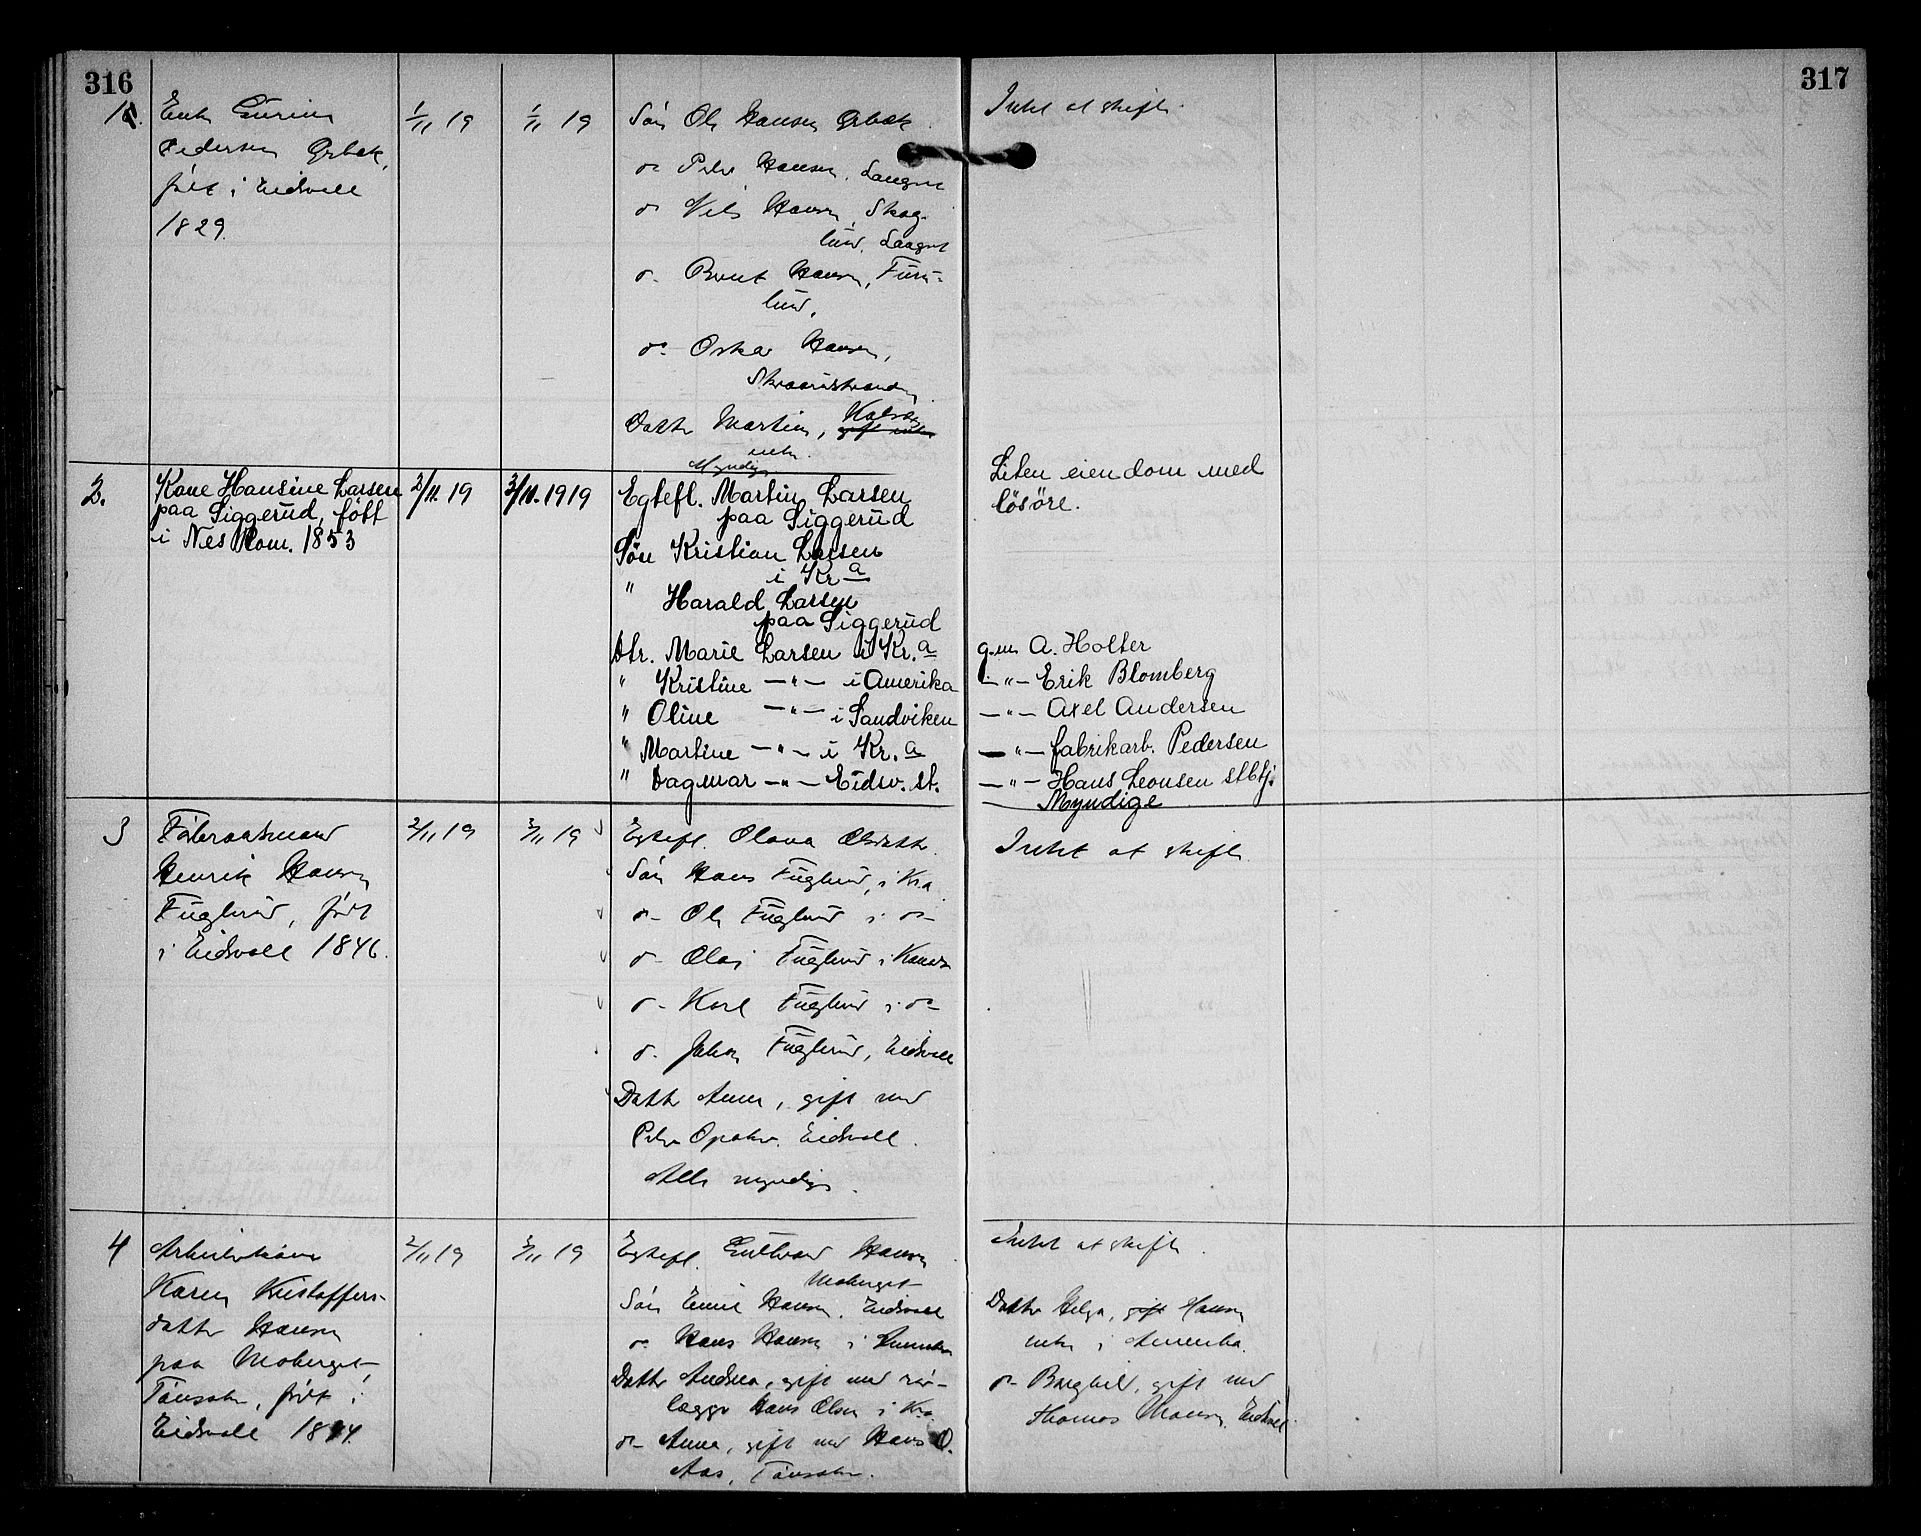 316
317
1.
Enke Gurine
Pedersen Ørbæk,
født i Eidsvoll
1829.
1/11 19
1/11 19
Søn Ole Hansen Ørbæk.
do Peder Hansen, Langset
do Nils Hansen, Skog-
lund, Langset
do Bernt Hansen, Furu-
lund,
do Oskar Hansen,
Datter Martine,
enke
Myndige
Intet at skifte.
2.
Kone Hansine Larsen
paa Siggerud, født
i Nes Rom. 1853
2/11. 19
3/11. 1919
Egtefl. Martin Larsen
paa Siggerud
Søn Kristian Larsen
i Kra
" Harald Larsen
paa Siggerud
Dtr. Marie Larsen i Kr.a
" Kristine —"— i Amerika
" Oline —"— i Sandviken
" Martine —"— i Kr.a
" Dagmar —"— Eidsv. st.
Liten eiendom med
lösöre.
g.m. A. Holter
—"— Erik Blomberg
—"— Axel Andersen
—"— fabrikarb. Pedersen
—"— Hans Leonsen stbtj.
Myndige
3
Føderaadsmand
Henrik Hansen
Fuglerud, født
i Eidsvoll 1846.
2/11 19
3/11 19
Egtefl. Olava Olsdatter.
Søn Hans Fuglerud, i Kra
do Ole Fuglerud i do
do Olaf Fuglerud i Kanada
do Karl Fuglerud i do
do Johan Fuglerud, Eidsvoll
Datter Anna, gift med
Peder Opaker, Eidsvoll.
Alle myndige.
Intet at skifte.
4
Arbeiderkone
Karen Kristoffers-
datter Hansen
paa Moberget,
Tønsaker, født i
Eidsvoll
2/11 19
3/11 19
Egtefl. Gulbrand Hansen
Moberget
Søn Emil Hansen, Eidsvoll
do Hans Hansen i Amerika
Datter Andrea, gift med rør-
lægger Hans Olsen i Kra.
do Anna, gift med Hans O.
Aas, Tønsaker.
Intet at skifte.
Datter Helga, gift Hansen
enke i Amerika.
do Borghild, gift med
Thomas Hansen, Eidsvoll.